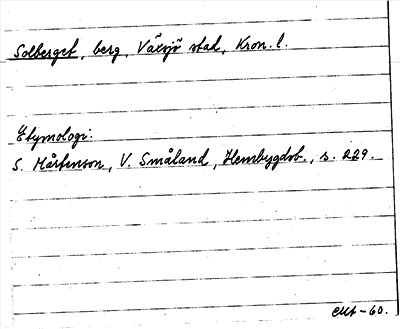 Solberget, berg, Växjö stad, Kron. l.
Etymologi:
S. Mårtenson, V. Småland, Hembygdsb., s. 229.
CMt-60.